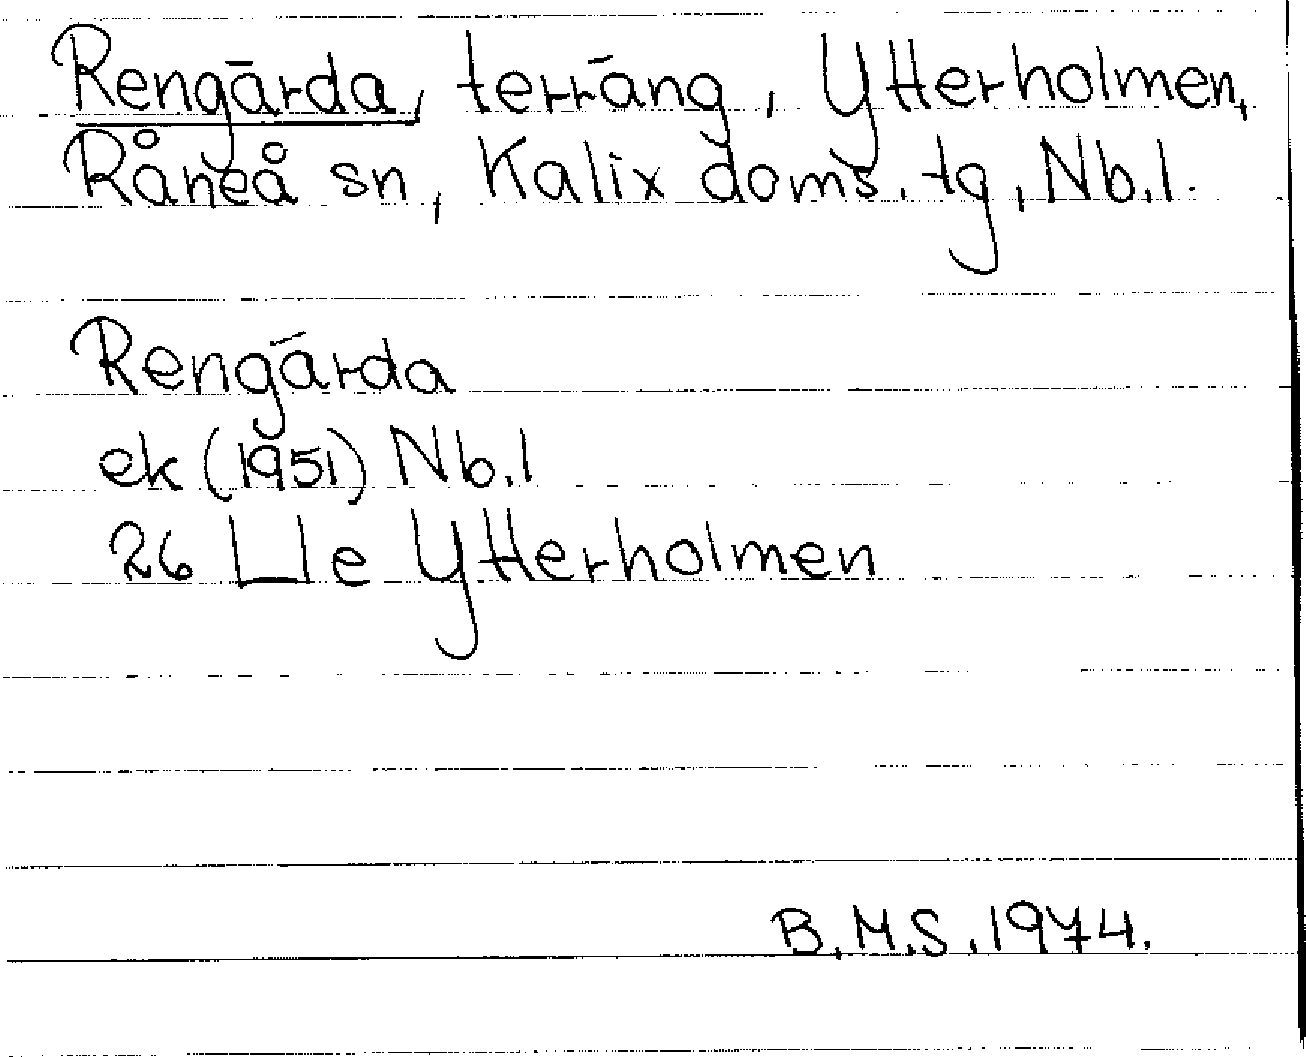 Rengärda, terräng, Ytterholmen,
Råneå sn, Kalix doms. tg, Nb. l.
Rengärda
ek (1951) Nb. l
26 L l e Ytterholmen
B.M.S. 1974.